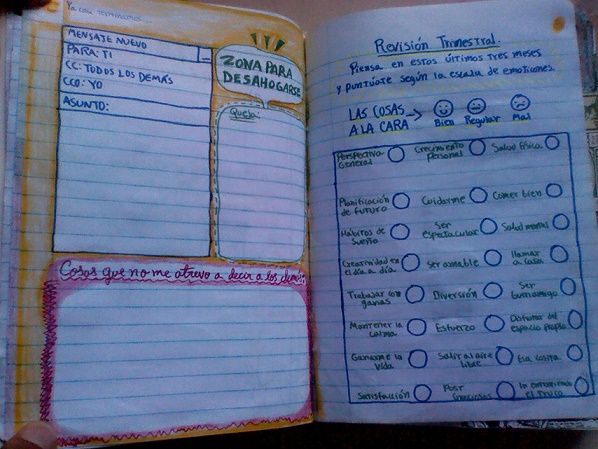 Ya casi terminamos...
MENSAJE NUEVO
PARA: TI
CC: TODOS LOS DEMÁS
CCO: YO
ASUNTO:
ZONA PARA
DESAHOGARSE
Queja:
Cosas que no me atrevo a decir a los demás
Revisión Trimestral.
Piensa en estos últimos tres meses
y puntúate según la escala de emoticones.
LAS COSAS
A LA CARA →
Bien Regular Mal
Perspectiva
General
Crecimiento
Personal
Salud física
Planificación
de futuro
Cuidarme
Comer bien
Hábitos de
Sueño
Ser
espectacular
Salud mental
Creatividad en
el día a día
Ser amable
llamar
a casa
Trabajar con
ganas
Diversión
Ser
buen amigo
Mantener la
calma
Esfuerzo
Disfrutar del
espacio propio
Ganarme la
Vida
Salir al aire
libre
Esa cosita
Satisfacción
Post
Graciosos
el truco